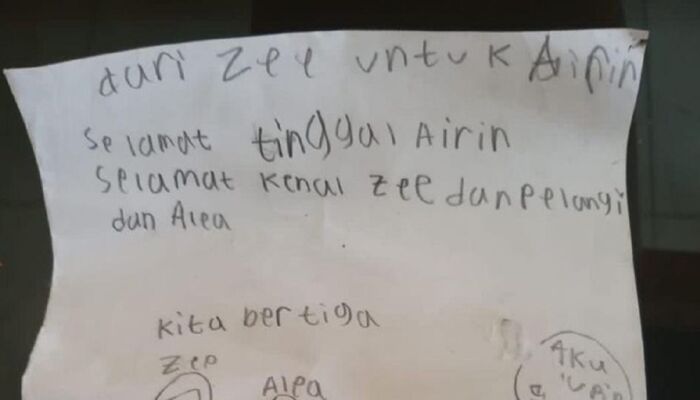 dari Zee untuk Airin
selamat tinggal Airin
selamat kenal zee dan pelangi
dan Alea
kita bertiga
Zee
Alea
AKU